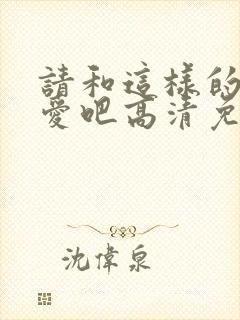 請和這樣的
愛吧高清免
沈偉泉